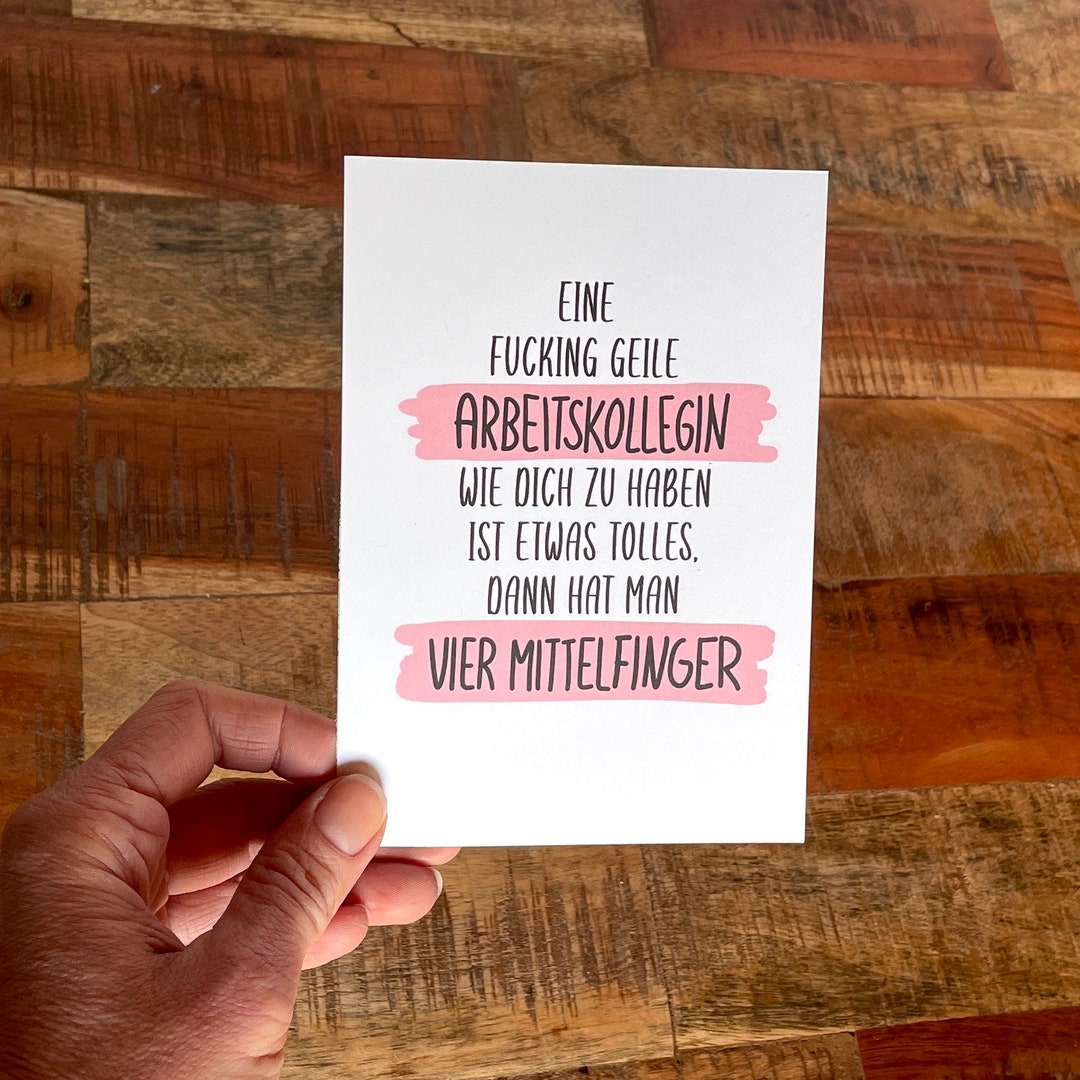 EINE
FUCKING GEILE
ARBEITSKOLLEGIN
WIE DICH ZU HABEN
IST ETWAS TOLLES,
DANN HAT MAN
VIER MITTELFINGER